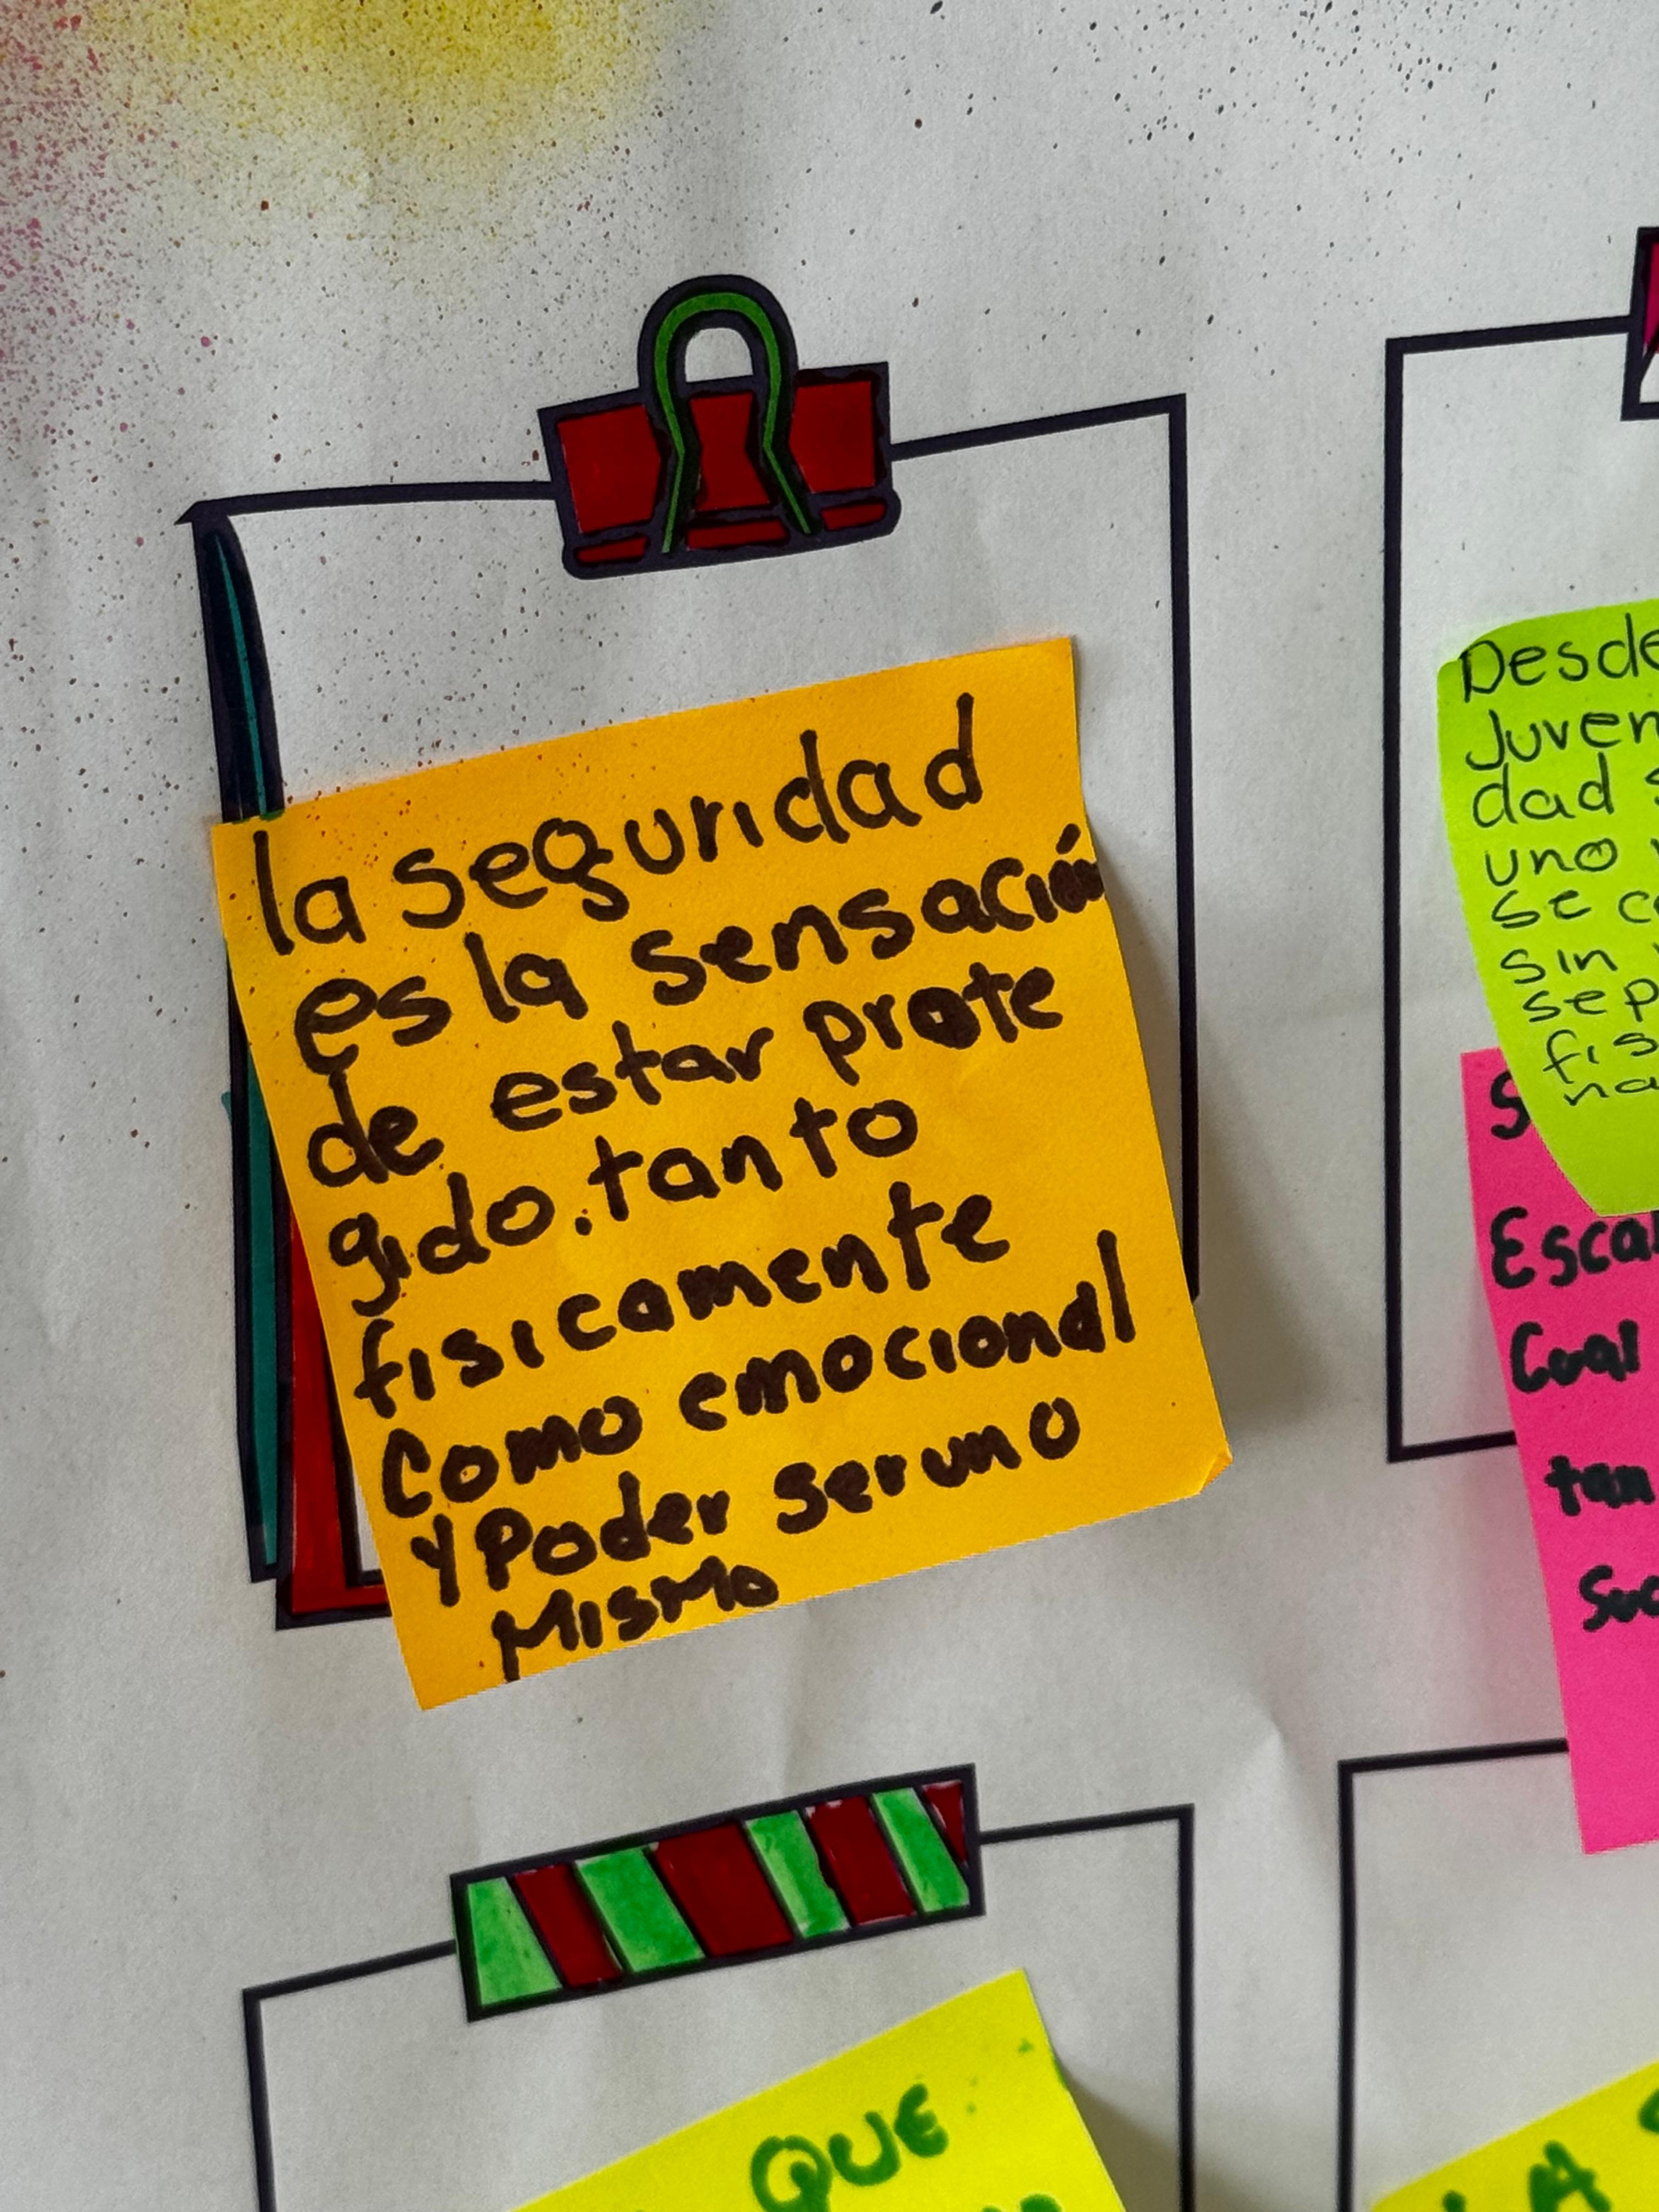 la seguridad
es la sensación
de estar prote
gido. tanto
fisicamente
Como emocional
y Poder ser uno
Mismo
Desde
Juven
dad
uno
se
sin
sep
fis
Escal
tan
QUE